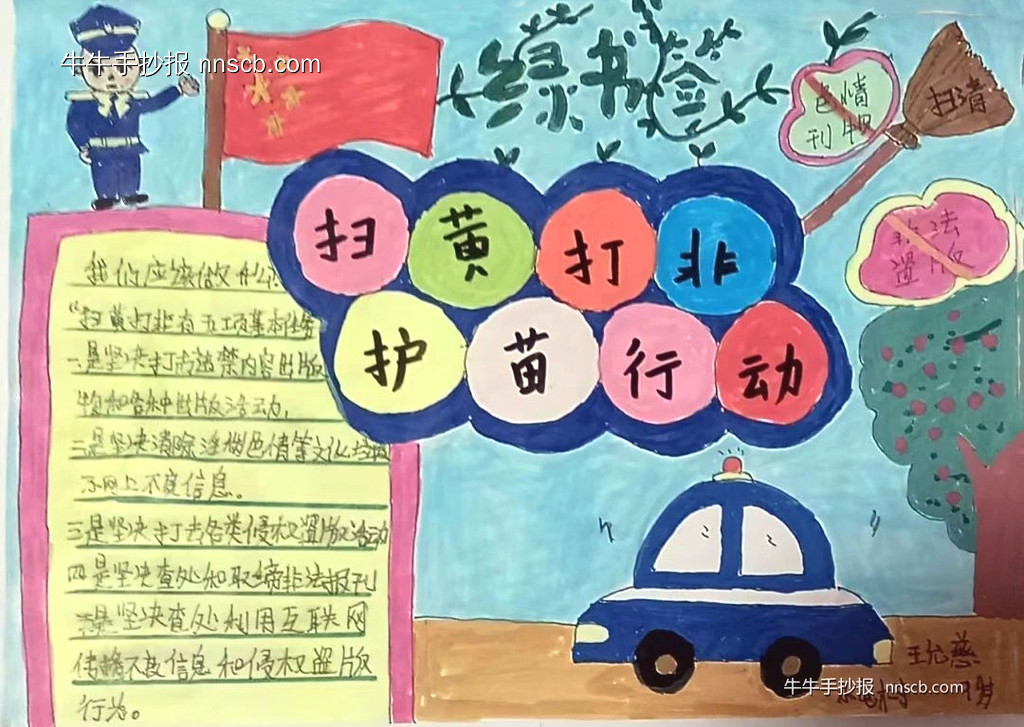 牛牛手抄报 nnscb.com
绿书签
色情
刊物
扫清
扫黄打非
护苗行动
非法
盗版
我们应该做什么?
“扫黄打非有五项基本任务
一.是坚决打击违禁内容出版
物和各种出版活动,
二是坚决清除淫秽色情等文化垃圾
不良信息。
三是坚决打击各类侵权盗版活动
四是坚决查处和取缔非法报刊
是坚决查处利用互联网
传播不良信息和侵权盗版
行为。
王允慈
牛牛手抄报 nnscb.com